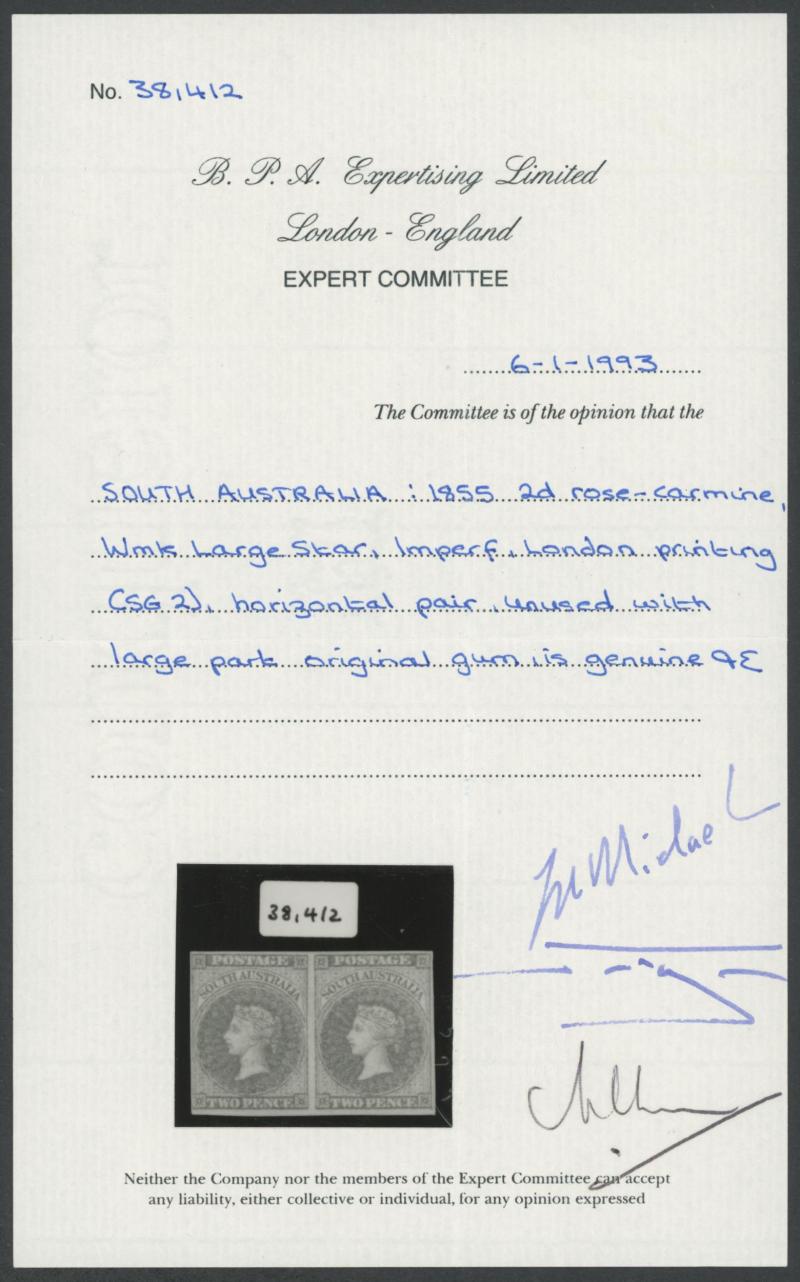 No. 38,412
B. P. A. Expertising Limited
London - England
EXPERT COMMITTEE
6-1-1993
The Committee is of the opinion that the
SOUTH AUSTRALIA : 1855 2d rose-carmine,
Wmk Large Star, Imperf, London printing
(SG 2), horizontal pair, unused with
large part original gum, is genuine
38,412
POSTAGE POSTAGE
SOUTH AUSTRALIA SOUTH AUSTRALIA
TWO PENCE TWO PENCE
Neither the Company nor the members of the Expert Committee can accept
any liability, either collective or individual, for any opinion expressed